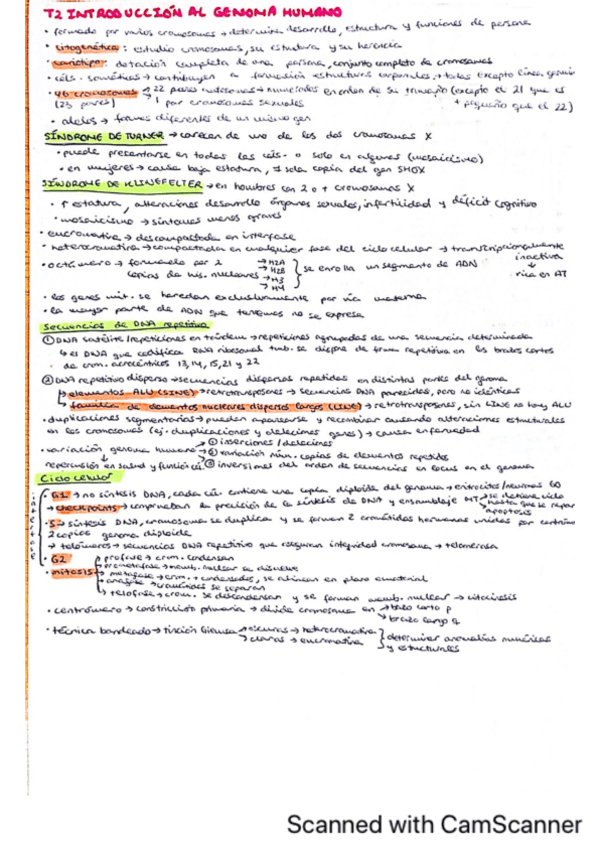 T2 INTRODUCCIÓN AL GENOMA HUMANO
• formado por varios cromosomas → determina desarrollo, estructura y funciones de persona
• citogenética: estudio cromosomas, su estructura y su herencia
• cariotipo: dotación completa de una persona, conjunto completo de cromosomas
• céls. somáticas → contribuyen a formación estructuras corporales → todas excepto línea germin
• 46 cromosomas → 22 pares autosomas → numerados en orden de su tamaño (excepto el 21 que es
(23 pares) 1 par cromosomas sexuales + pequeño que el 22)
• alelos → formas diferentes de un mismo gen
SÍNDROME DE TURNER → carecen de uno de los dos cromosomas X
• puede presentarse en todas las céls. o solo en algunas (mosaicismo)
• en mujeres → causa baja estatura, 1 sola copia del gen SHOX
SÍNDROME DE KLINEFELTER → en hombres con 2 o + cromosomas X
• ↑ estatura, alteraciones desarrollo órganos sexuales, infertilidad y déficit cognitivo
• mosaicismo → síntomas menos graves
• eucromatina → descompactada en interfase
• heterocromatina → compactada en cualquier fase del ciclo celular → transcripcionalmente
inactiva
• octámero → formado por 2 copias de his. nucleares → H2A → H2B → H3 → H4 } se enrolla un segmento de ADN
rica en AT
• los genes mit. se heredan exclusivamente por vía materna
• la mayor parte de ADN que tenemos no se expresa
Secuencias de DNA repetitivo
① DNA satélite/repeticiones en tándem → repeticiones agrupadas de una secuencia determinada
↳ el DNA que codifica RNA ribosomal tmb. se dispone de forma repetitiva en los brazos cortos
de crom. acrocéntricos 13, 14, 15, 21 y 22
② DNA repetitivo disperso → secuencias dispersas repetidas en distintas partes del genoma
↳ elementos ALU (SINE) → retrotransposones → secuencias DNA parecidas, pero no idénticas
↳ familia de elementos nucleares dispersos largos (LINE) → retrotransposones, sin LINE no hay ALU
• duplicaciones segmentarias → pueden aparearse y recombinar causando alteraciones estructurales
en los cromosomas (ej. duplicaciones y deleciones genes) → causa enfermedad
• variación genoma humano → ① inserciones/deleciones
② variación núm. copias de elementos repetidos
repercusión en salud y función cél. ③ inversiones del orden de secuencias en locus en el genoma
Ciclo celular
interfase
• G1 → no síntesis DNA, cada cél. contiene una copia diploide del genoma • eritrocitos/neuronas G0
→ checkpoints → comprueban la precisión de la síntesis de DNA y ensamblaje MT → se detiene ciclo
hasta que se repare
apoptosis
• S → síntesis DNA, cromosoma se duplica y se forman 2 cromátidas hermanas unidas por centrómero
2 copias genoma diploide
→ telómeros → secuencias DNA repetitivo que aseguran integridad cromosoma → telomerasa
• G2
• mitosis → profase → crom. condensan
→ prometafase → memb. nuclear se disuelve
→ metafase → crom. + condensados, se alinean en plano ecuatorial
→ anafase → cromátides se separan
→ telofase → crom. se descondensan y se forman memb. nuclear → citocinesis
• centrómero → constricción primaria → divide cromosoma en → brazo corto p
→ brazo largo q
• técnica bandeado → tinción Giemsa → oscuras → heterocromatina
→ claras → eucromatina } determinar anomalías numéricas
y estructurales
Scanned with CamScanner